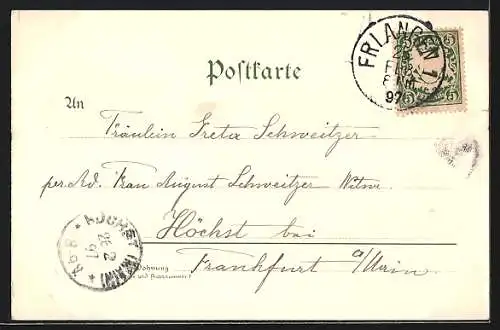 Postkarte
ERLANGEN 1
25
FEB.
97
5 5
An
Fräulein Greta Schweitzer
per. Ad. Frau August Schweitzer Witwe
Höchst bei
Frankfurt a/Main
Wohnung
HÖCHST (MAIN)
26 2
97
8-9 V